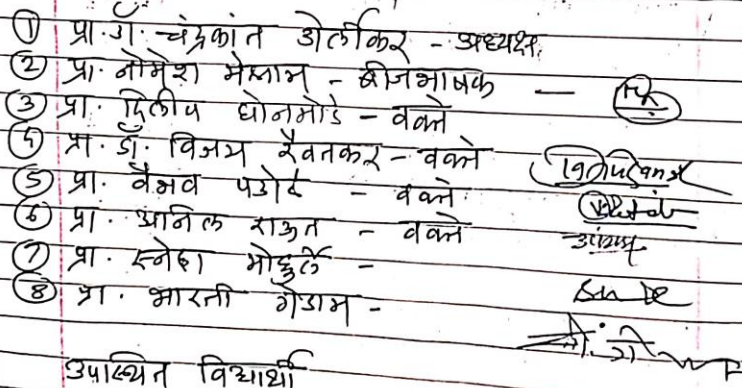 ① प्रा. डॉ. चंद्रकांत डोर्लीकर - अध्यक्ष
② प्रा. नोमेश मेश्राम - बीजभाषक —
③ प्रा. दिलीप घोनमोडे - वक्ते
④ प्रा. डॉ. विजय रैवतकर - वक्ते
⑤ प्रा. वैभव पडोळे - वक्ते
⑥ प्रा. अनिल राऊत - वक्ते
⑦ प्रा. स्नेहा मोहुर्ले -
⑧ प्रा. भारती गेडाम -
उपास्थित विद्यार्थी